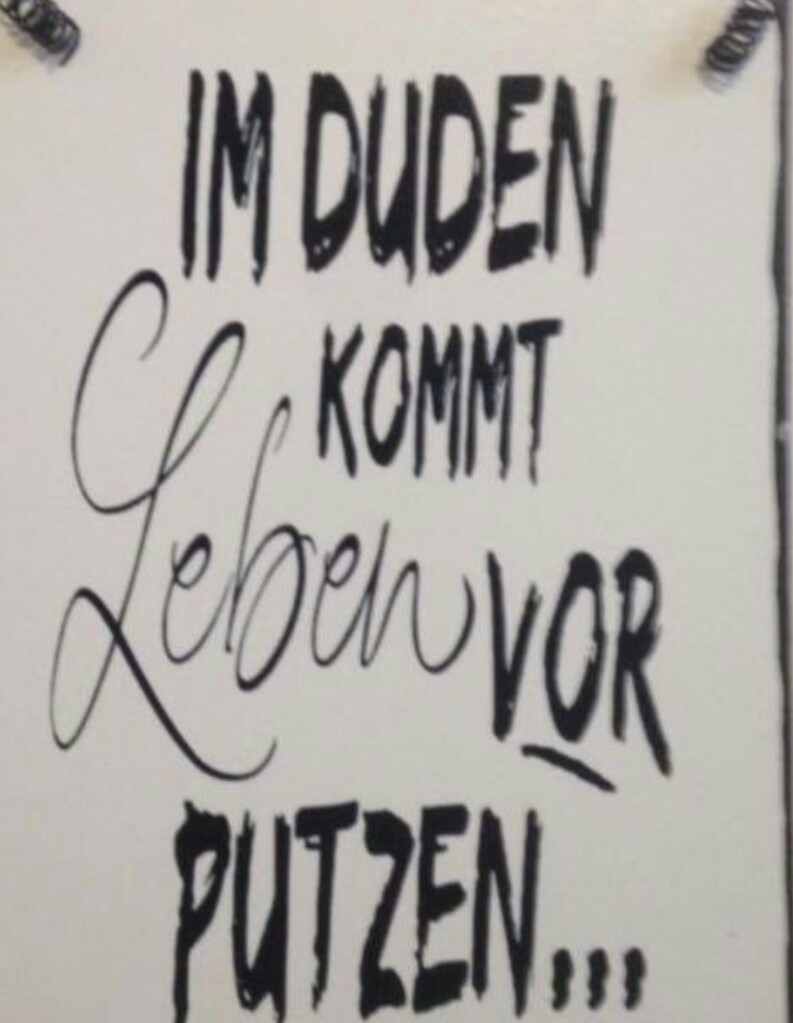 IM DUDEN
KOMMT
Leben VOR
PUTZEN...